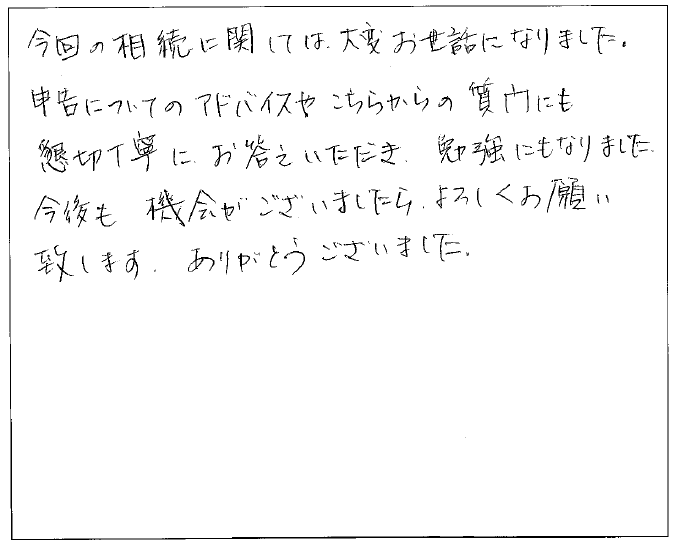 今回の相続に関しては、大変お世話になりました。
申告についてのアドバイスや こちらからの質問にも
懇切丁寧に、お答えいただき、勉強にもなりました。
今後も 機会がございましたら、よろしくお願い
致します。ありがとうございました。